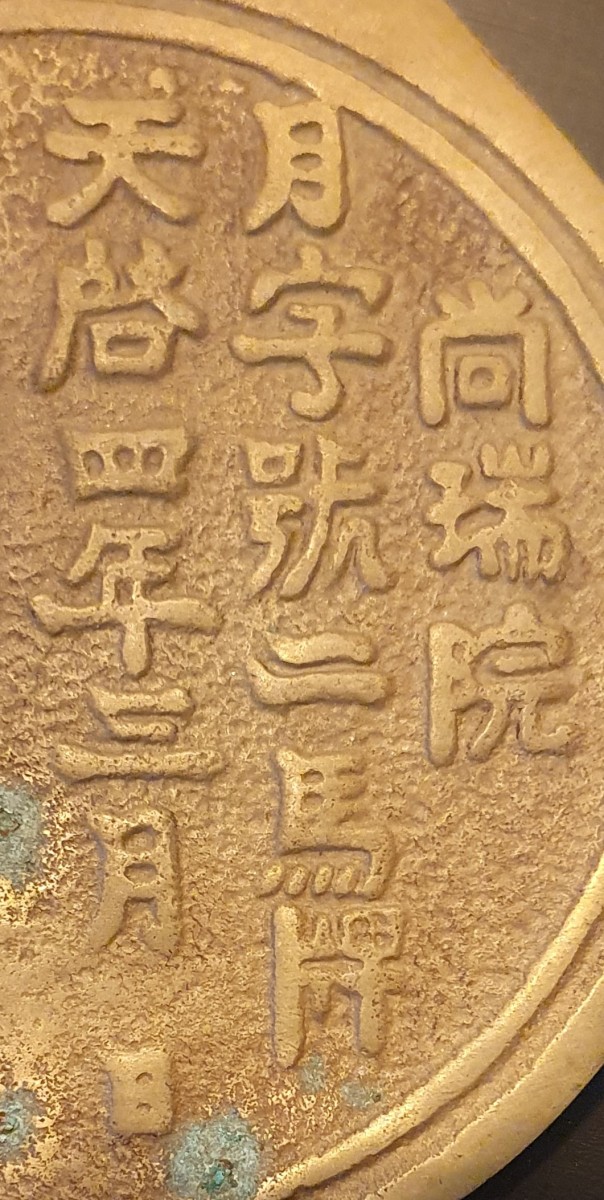 尚瑞院
月字號二馬牌
天啓四年三月　日